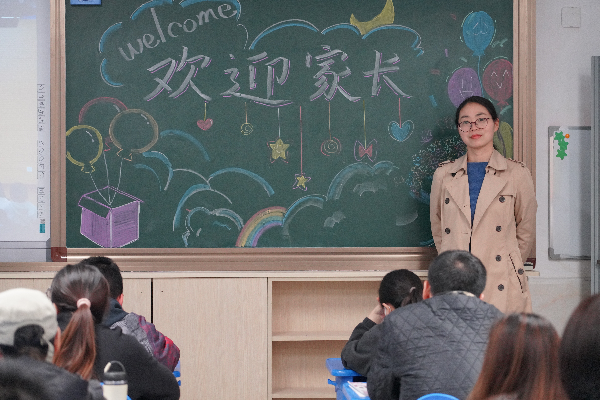 welcome
欢迎家长